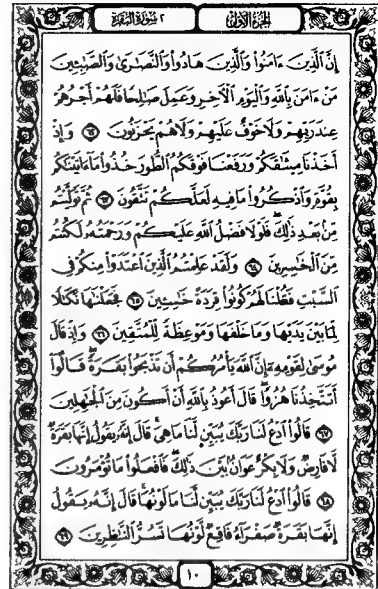 الجزء الأول
٢ سورة البقرة
إِنَّ ٱلَّذِينَ ءَامَنُوا۟ وَٱلَّذِينَ هَادُوا۟ وَٱلنَّصَـٰرَىٰ وَٱلصَّـٰبِـِٔينَ
مَنْ ءَامَنَ بِٱللَّهِ وَٱلْيَوْمِ ٱلْـَٔاخِرِ وَعَمِلَ صَـٰلِحًا فَلَهُمْ أَجْرُهُمْ
عِندَ رَبِّهِمْ وَلَا خَوْفٌ عَلَيْهِمْ وَلَا هُمْ يَحْزَنُونَ ٦٢ وَإِذْ
أَخَذْنَا مِيثَـٰقَكُمْ وَرَفَعْنَا فَوْقَكُمُ ٱلطُّورَ خُذُوا۟ مَآ ءَاتَيْنَـٰكُم
بِقُوَّةٍ وَٱذْكُرُوا۟ مَا فِيهِ لَعَلَّكُمْ تَتَّقُونَ ٦٣ ثُمَّ تَوَلَّيْتُم
مِّنۢ بَعْدِ ذَٰلِكَ ۖ فَلَوْلَا فَضْلُ ٱللَّهِ عَلَيْكُمْ وَرَحْمَتُهُۥ لَكُنتُم
مِّنَ ٱلْخَـٰسِرِينَ ٦٤ وَلَقَدْ عَلِمْتُمُ ٱلَّذِينَ ٱعْتَدَوْا۟ مِنكُمْ فِى
ٱلسَّبْتِ فَقُلْنَا لَهُمْ كُونُوا۟ قِرَدَةً خَـٰسِـِٔينَ ٦٥ فَجَعَلْنَـٰهَا نَكَـٰلًا
لِّمَا بَيْنَ يَدَيْهَا وَمَا خَلْفَهَا وَمَوْعِظَةً لِّلْمُتَّقِينَ ٦٦ وَإِذْ قَالَ
مُوسَىٰ لِقَوْمِهِۦٓ إِنَّ ٱللَّهَ يَأْمُرُكُمْ أَن تَذْبَحُوا۟ بَقَرَةً ۖ قَالُوٓا۟
أَتَتَّخِذُنَا هُزُوًا ۖ قَالَ أَعُوذُ بِٱللَّهِ أَنْ أَكُونَ مِنَ ٱلْجَـٰهِلِينَ
٦٧ قَالُوا۟ ٱدْعُ لَنَا رَبَّكَ يُبَيِّن لَّنَا مَا هِىَ ۚ قَالَ إِنَّهُۥ يَقُولُ إِنَّهَا بَقَرَةٌ
لَّا فَارِضٌ وَلَا بِكْرٌ عَوَانٌۢ بَيْنَ ذَٰلِكَ ۖ فَٱفْعَلُوا۟ مَا تُؤْمَرُونَ
٦٨ قَالُوا۟ ٱدْعُ لَنَا رَبَّكَ يُبَيِّن لَّنَا مَا لَوْنُهَا ۚ قَالَ إِنَّهُۥ يَقُولُ
إِنَّهَا بَقَرَةٌ صَفْرَآءُ فَاقِعٌ لَّوْنُهَا تَسُرُّ ٱلنَّـٰظِرِينَ ٦٩
١٠